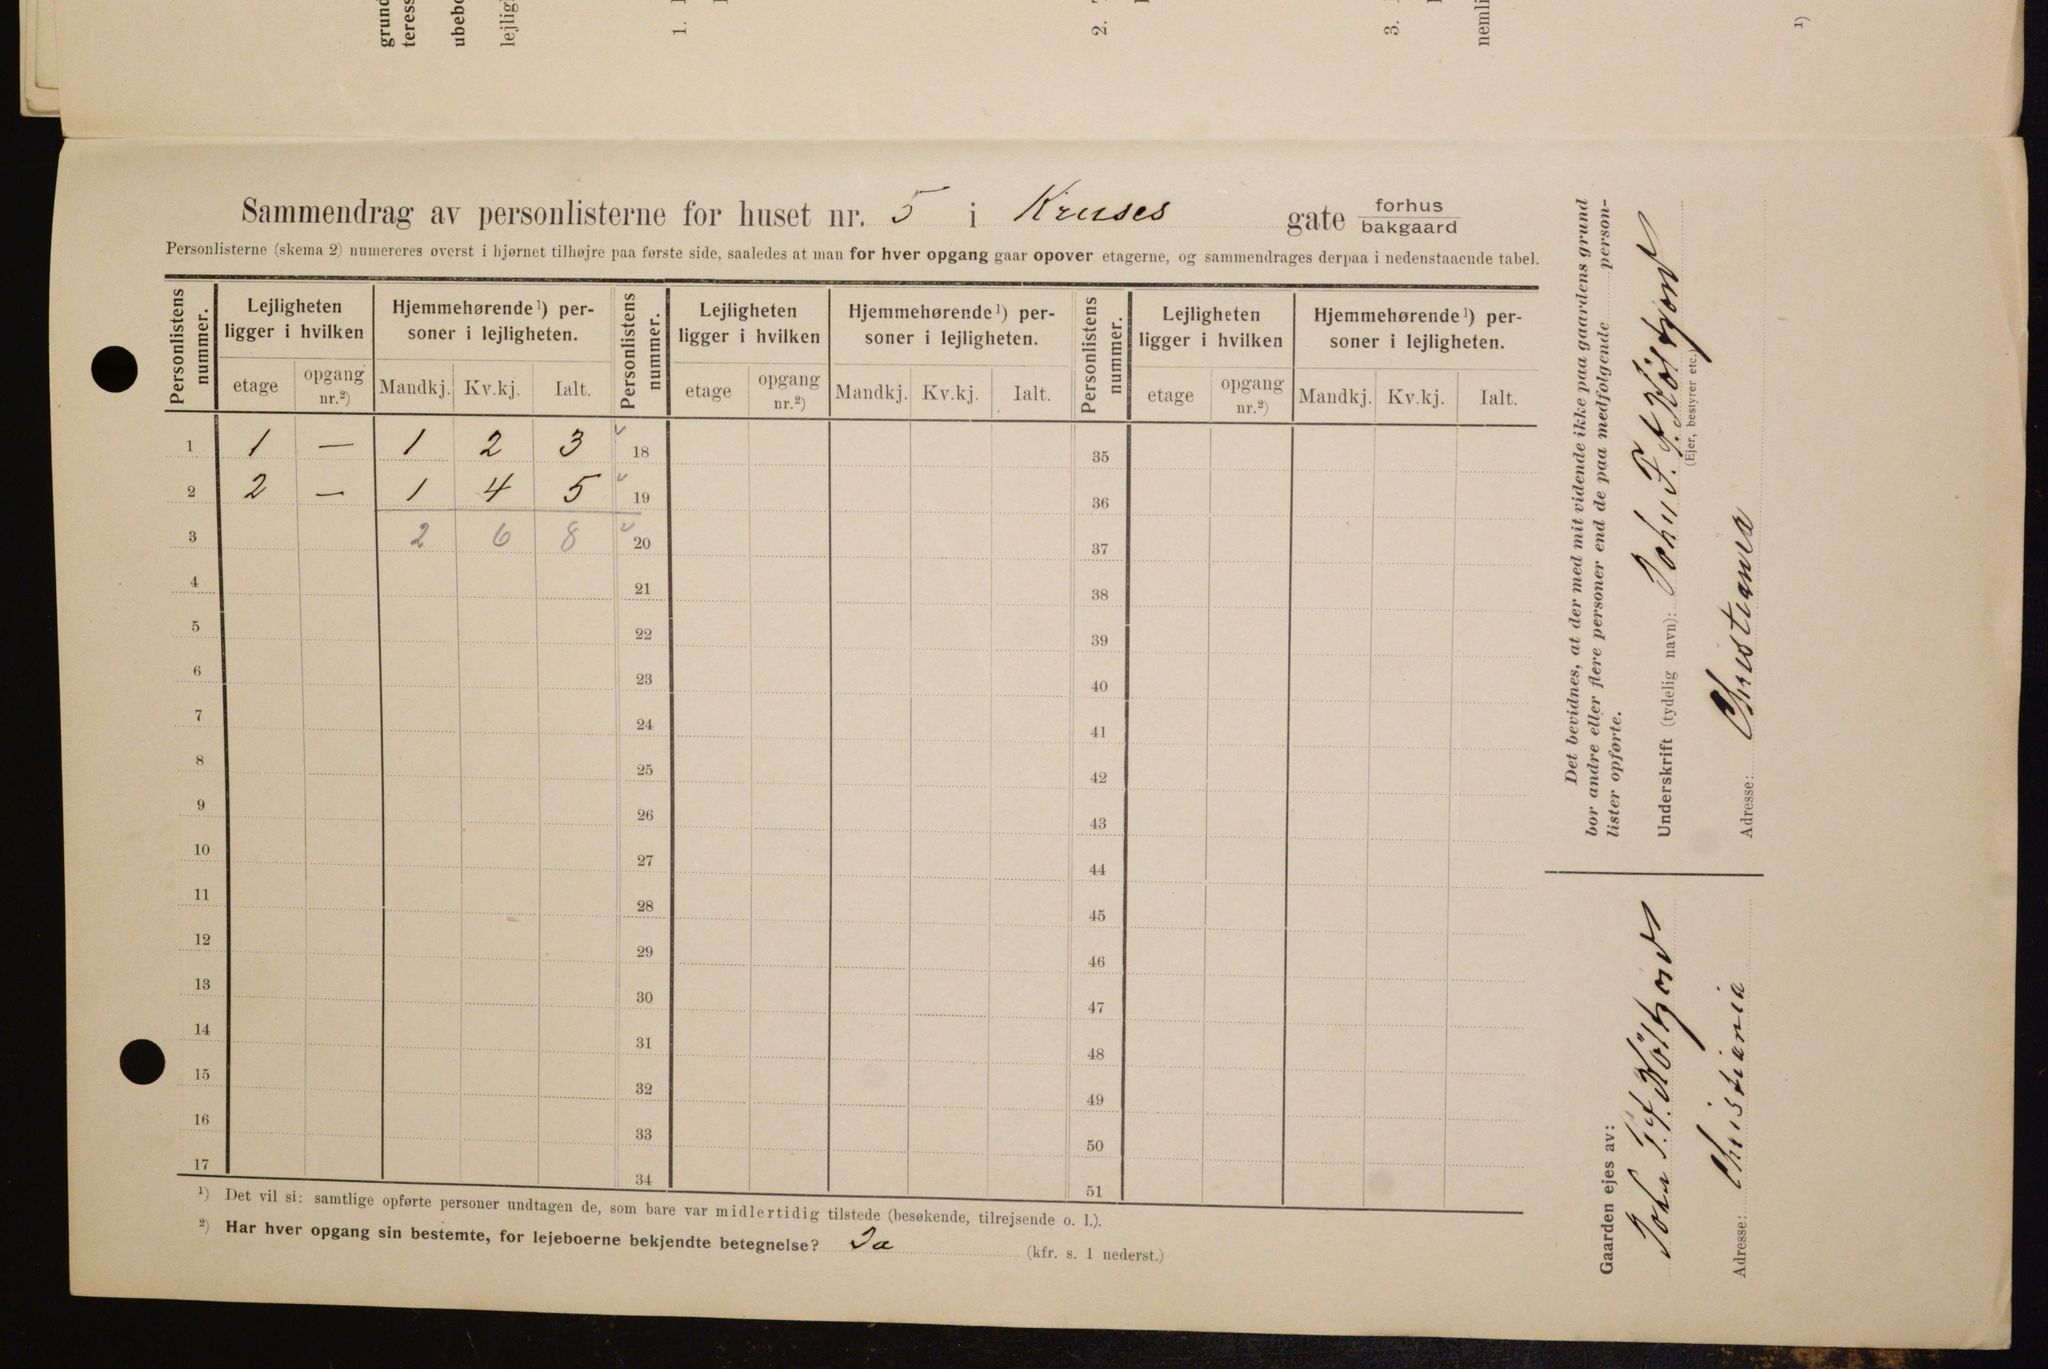 grund
teress
1.
2.
3.
nemli
1)
Sammendrag av personlisterne for huset nr. 5 i Kruses gate forhus
bakgaard
Personlisterne (skema 2) numereres øverst i hjørnet tilhøjre paa første side, saaledes at man for hver opgang gaar opover etagerne, og sammendrages derpaa i nedenstaaende tabel.
Personlistens nummer. Lejligheten ligger i hvilken Hjemmehørende¹) personer i lejligheten. Personlistens nummer. Lejligheten ligger i hvilken Hjemmehørende¹) personer i lejligheten. Personlistens nummer. Lejligheten ligger i hvilken Hjemmehørende¹) personer i lejligheten.
etage opgang nr.²) Mandkj. Kv.kj. Ialt. etage opgang nr.²) Mandkj. Kv.kj. Ialt. etage opgang nr.²) Mandkj. Kv.kj. Ialt.
1 1 — 1 2 3 18 35
2 2 — 1 4 5 19 36
3 2 6 8 20 37
4 21 38
5 22 39
6 23 40
7 24 41
8 25 42
9 26 43
10 27 44
11 28 45
12 29 46
13 30 47
14 31 48
15 32 49
16 33 50
17 34 51
¹) Det vil si: samtlige opførte personer undtagen de, som bare var midlertidig tilstede (besøkende, tilrejsende o. l.).
²) Har hver opgang sin bestemte, for lejeboerne bekjendte betegnelse? Ja (kfr. s. 1 nederst.)
Det bevidnes, at der med mit vidende ikke paa gaardens grund
bor andre eller flere personer end de paa medfølgende person-
lister opførte.
Underskrift (tydelig navn): John F. F.
(Ejer, bestyrer etc.)
Adresse: Christiania
Gaarden ejes av:
John F. F.
Adresse: Christiania